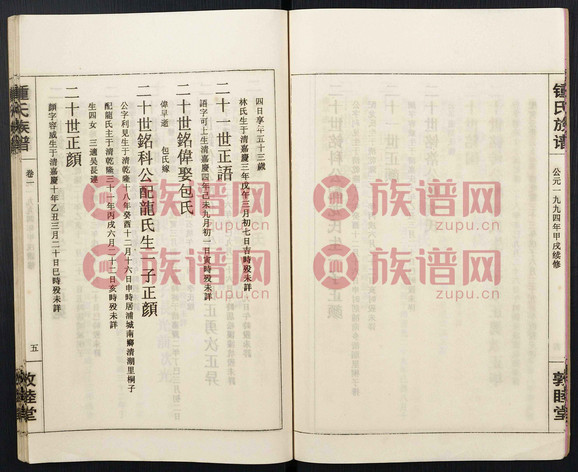 鍾氏族谱
公元一九九四年甲戌续修
敦睦堂
四日享年五十三歲
林氏生于清嘉慶三年戊午三月初七日吉時殁未詳
二十一世正語
語字可上生清嘉慶四年己未九月初一日寅時殁未詳
二十世銘偉娶包氏
偉早逝 包氏嫁
二十世銘科公配龍氏生一子正顏
公字利見生于清乾隆十八年癸酉十二月十六日申時居浦城南鄉清湖里桐子
配龍氏主于清乾隆三十一年丙戌六月二十二日亥時殁未詳
生四女 三適吴長連
二十世正顏
顏字容威生于清嘉慶十年乙丑三月二十日巳時殁未詳
鍾氏族谱
卷一
五
敦睦堂
族谱网
zupu.cn
族谱网
zupu.cn
族谱网
zupu.cn
族谱网
zupu.cn